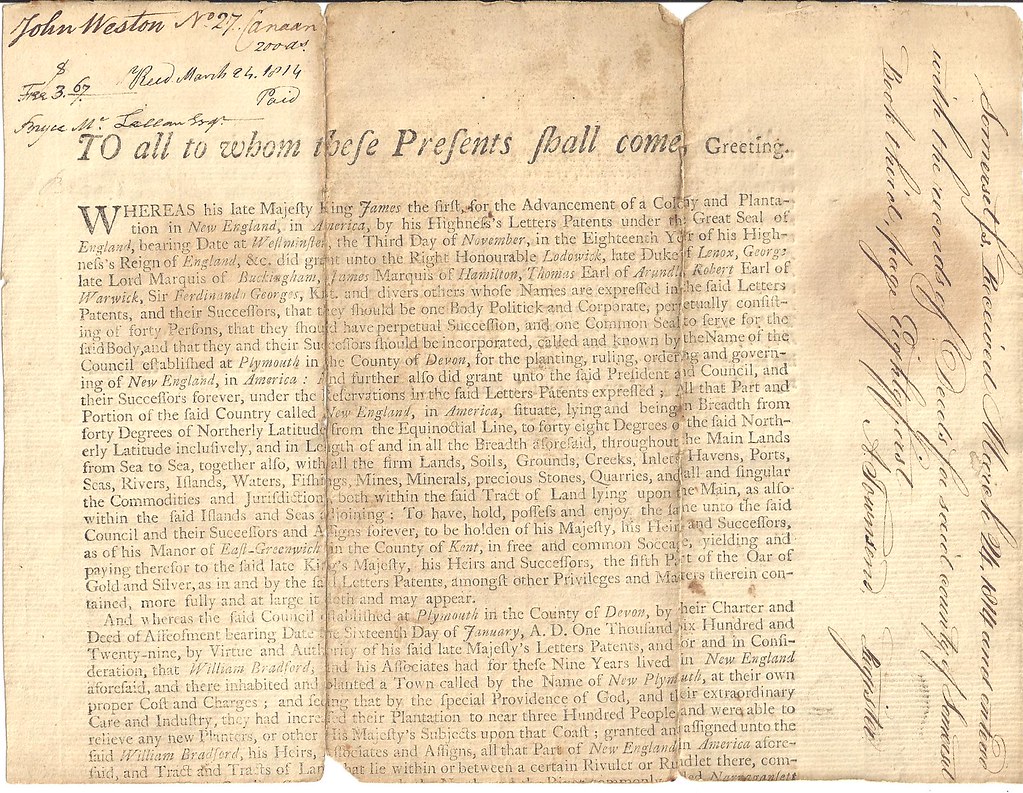 John Weston No 27. Canaan
200 as.
$
Fee 3.67 Recd March 24. 1814
Paid
Bryce Mc Lallan Esqr
TO all to whom theſe Preſents ſhall come, Greeting.
WHEREAS his late Majeſty King James the firſt, for the Advancement of a Colony and Planta-
tion in New England, in America, by his Highneſs's Letters Patents under the Great Seal of
England, bearing Date at Weſtminſter, the Third Day of November, in the Eighteenth Year of his High-
neſs's Reign of England, &c. did grant unto the Right Honourable Lodowick, late Duke of Lenox, George
late Lord Marquis of Buckingham, James Marquis of Hamilton, Thomas Earl of Arundel, Robert Earl of
Warwick, Sir Ferdinando Georges, Knt. and divers others whoſe Names are expreſſed in the ſaid Letters
Patents, and their Succeſſors, that they ſhould be one Body Politick and Corporate, perpetually conſiſt-
ing of forty Perſons, that they ſhould have perpetual Succeſſion, and one Common Seal to ſerve for the
ſaid Body, and that they and their Succeſſors ſhould be incorporated, called and known by the Name of the
Council eſtabliſhed at Plymouth in the County of Devon, for the planting, ruling, ordering and govern-
ing of New England, in America : And further alſo did grant unto the ſaid Preſident and Council, and
their Succeſſors forever, under the Reſervations in the ſaid Letters Patents expreſſed ; All that Part and
Portion of the ſaid Country called New England, in America, ſituate, lying and being in Breadth from
forty Degrees of Northerly Latitude from the Equinoctial Line, to forty eight Degrees of the ſaid North-
erly Latitude incluſively, and in Length of and in all the Breadth aforeſaid, throughout the Main Lands
from Sea to Sea, together alſo, with all the firm Lands, Soils, Grounds, Creeks, Inlets, Havens, Ports,
Seas, Rivers, Iſlands, Waters, Fiſhings, Mines, Minerals, precious Stones, Quarries, and all and ſingular
the Commodities and Juriſdictions, both within the ſaid Tract of Land lying upon the Main, as alſo
within the ſaid Iſlands and Seas adjoining : To have, hold, poſſeſs and enjoy the ſame unto the ſaid
Council and their Succeſſors and Aſſigns forever, to be holden of his Majeſty, his Heirs and Succeſſors,
as of his Manor of Eaſt-Greenwich in the County of Kent, in free and common Soccage, yielding and
paying therefor to the ſaid late King's Majeſty, his Heirs and Succeſſors, the fifth Part of the Oar of
Gold and Silver, as in and by the ſaid Letters Patents, amongſt other Privileges and Matters therein con-
tained, more fully and at large it doth and may appear.
And whereas the ſaid Council eſtabliſhed at Plymouth in the County of Devon, by their Charter and
Deed of Aſſeoſment bearing Date the Sixteenth Day of January, A. D. One Thouſand Six Hundred and
Twenty-nine, by Virtue and Authority of his ſaid late Majeſty's Letters Patents, and for and in Conſi-
deration, that William Bradford, and his Aſſociates had for theſe Nine Years lived in New England
aforeſaid, and there inhabited and planted a Town called by the Name of New Plymouth, at their own
proper Coſt and Charges ; and ſeeing that by the ſpecial Providence of God, and their extraordinary
Care and Induſtry, they had increaſed their Plantation to near three Hundred People, and were able to
relieve any new Planters, or other His Majeſty's Subjects upon that Coaſt ; granted and aſſigned unto the
ſaid William Bradford, his Heirs, Aſſociates and Aſſigns, all that Part of New England in America afore-
ſaid, and Tract and Tracts of Land that lie within or between a certain Rivulet or Rundlet there, com-
Narraganſett
Somerset ſs, Received March 24, 1814 and entered
with the records of Deeds for said county of Somerset
Book third, page Eighty first
A. Townsend, Register